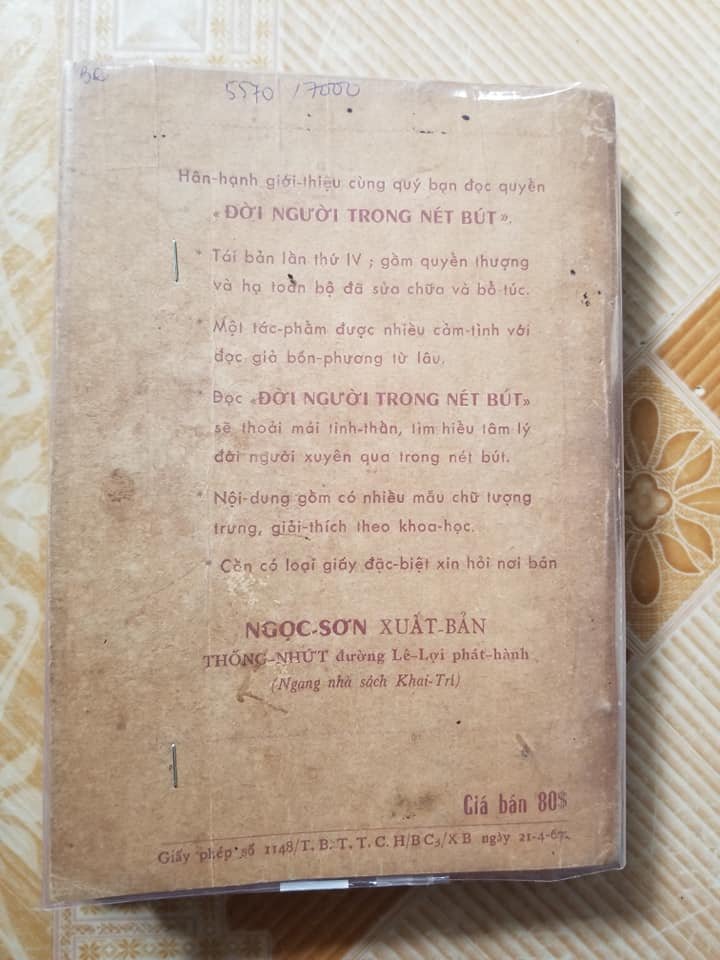 BQ
5570 / 7000
Hân-hạnh giới-thiệu cùng quý bạn đọc quyển
« ĐỜI NGƯỜI TRONG NÉT BÚT ».
* Tái bản lần thứ IV ; gồm quyển thượng
và hạ toàn bộ đã sửa chữa và bổ túc.
* Một tác-phẩm được nhiều cảm-tình với
đọc giả bốn-phương từ lâu.
* Đọc «ĐỜI NGƯỜI TRONG NÉT BÚT»
sẽ thoải mái tinh-thần, tìm hiểu tâm lý
đời người xuyên qua trong nét bút.
* Nội-dung gồm có nhiều mẫu chữ tượng
trưng, giải-thích theo khoa-học.
* Còn có loại giấy đặc-biệt xin hỏi nơi bán
NGỌC-SƠN XUẤT-BẢN
THỐNG-NHỨT đường Lê-Lợi phát-hành
(Ngang nhà sách Khai-Trí)
Giá bán 80$
Giấy phép số 1148/T.B.T.T.C.H/BC3/XB ngày 21-4-67.